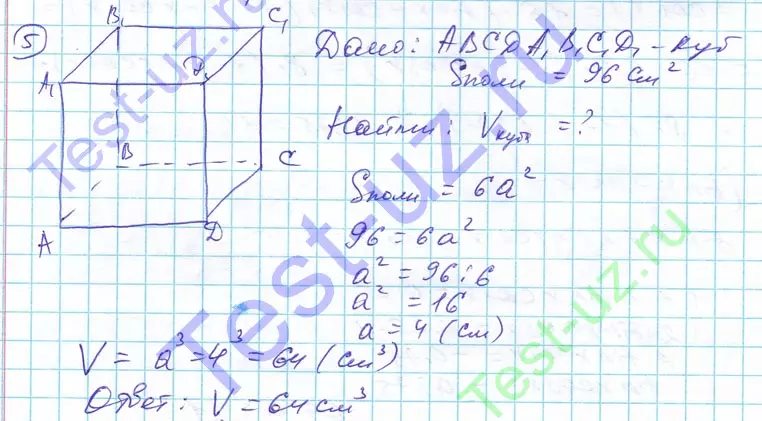 5
B₁ C₁
A₁ D₁
B C
A D
Дано: ABCDA₁B₁C₁D₁ - куб
Sполн = 96 см²
Найти: Vкуба = ?
Sполн = 6a²
96 = 6a²
a² = 96 : 6
a² = 16
a = 4 (см)
V = a³ = 4³ = 64 (см³)
Ответ: V = 64 см³
Test-uz.ru
Test-uz.ru
Test-uz.ru